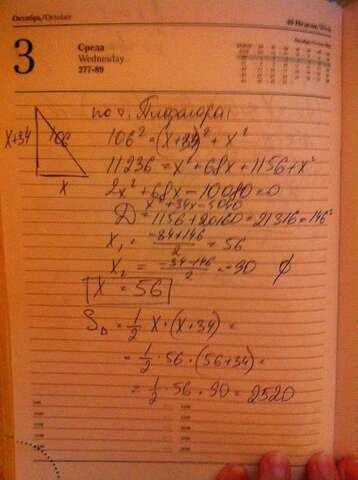 Октябрь/October
3
Среда
Wednesday
277-89
по т. Пифагора:
X+34
106
x
106² = (x+34)² + x²
11236 = x² + 68x + 1156 + x²
2x² + 68x - 10080 = 0
x² + 34x - 5040
D = 1156 + 20160 = 21316 = 146²
x₁ = -34+146/2 = 56
x₂ = -34-146/2 = -90 ∅
X = 56
S△ = 1/2 x·(x+34) =
= 1/2 · 56 · (56+34) =
= 1/2 · 56 · 90 = 2520